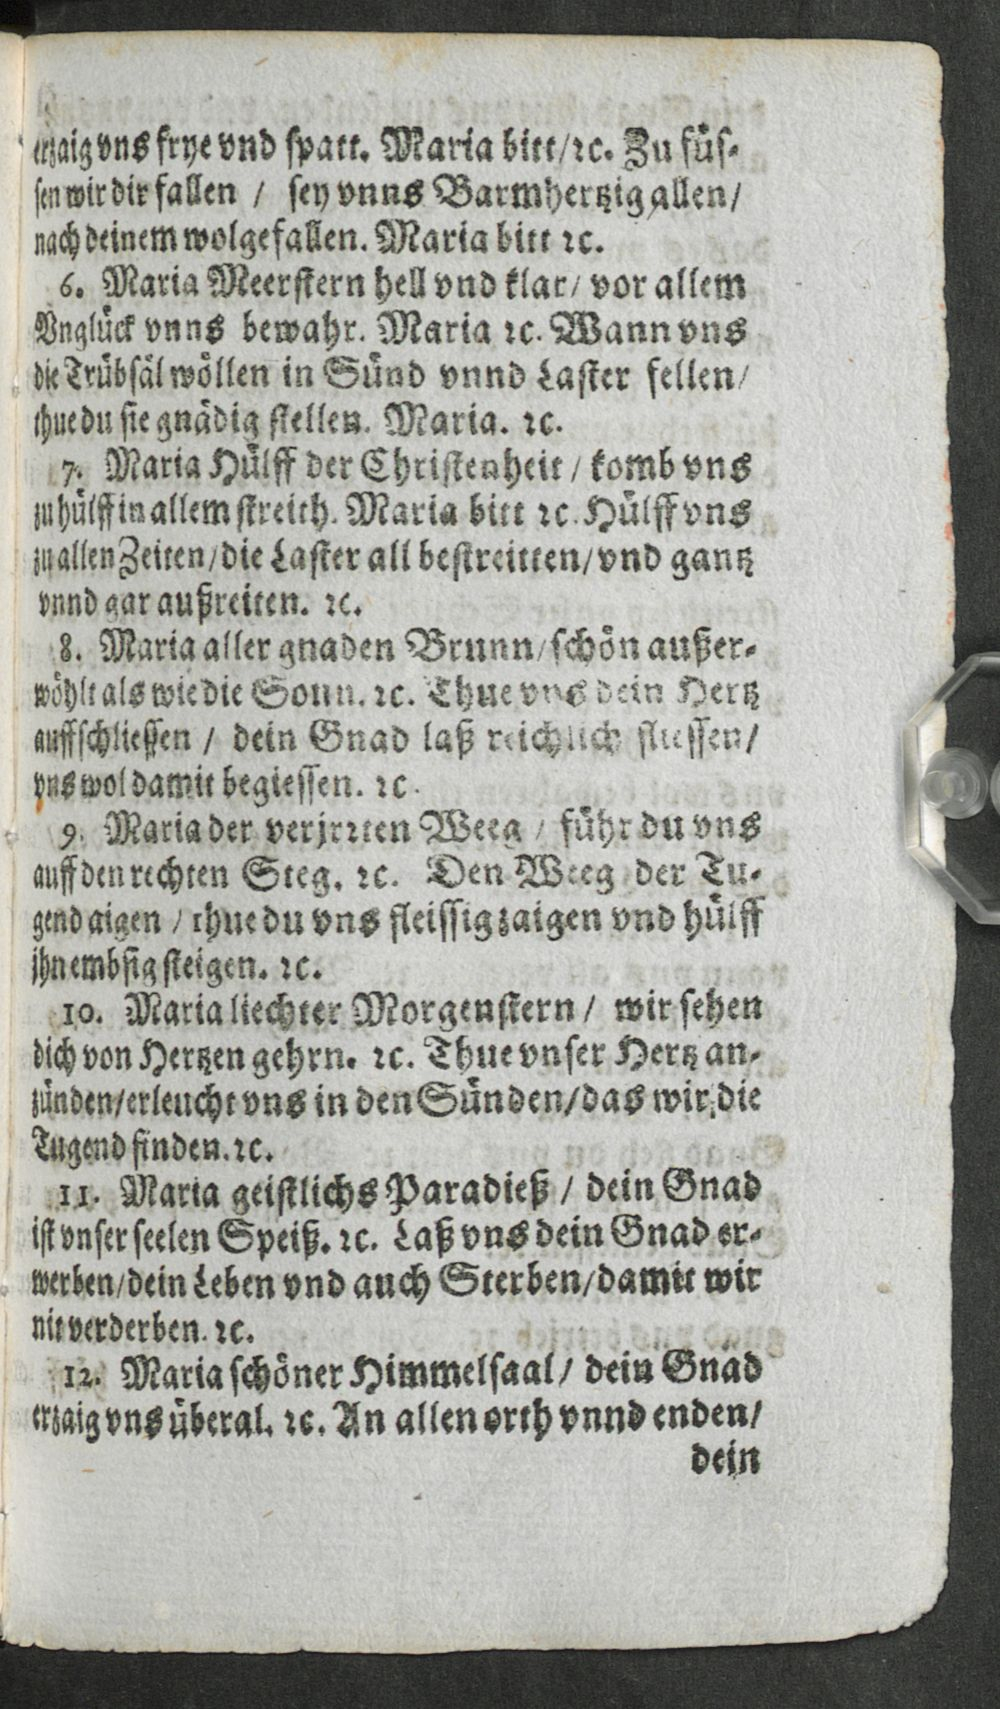 erzaig vns frye vnd spatt. Maria bitt/ ꝛc. Zu füs-
sen wir dir fallen / sey vnns Barmhertzig allen/
nach deinem wolgefallen. Maria bitt ꝛc.
6. Maria Meerstern hell vnd klar/ vor allem
Vnglück vnns bewahr. Maria ꝛc. Wann vns
die Trübsäl wöllen in Sünd vnnd Laster fellen/
thue du sie gnädig stellen. Maria. ꝛc.
7. Maria Hülff der Christenheit / komb vns
zu hülff in allem streith. Maria bitt ꝛc. Hülff vns
zu allen Zeiten/ die Laster all bestreitten/ vnd gantz
vnnd gar außreiten. ꝛc.
8. Maria aller gnaden Brunn/ schön außer-
wöhlt als wie die Sonn. ꝛc. Thue vns dein Hertz
auffschliessen / dein Gnad laß reichlich fliessen/
vns wol damit begiessen. ꝛc.
9. Maria der verjrrten Weeg / führ du vns
auff den rechten Steg. ꝛc. Den Weeg der Tu-
gend aigen / thue du vns fleissig zaigen vnd hülff
jhn embsig steigen. ꝛc.
10. Maria liechter Morgenstern / wir sehen
dich von Hertzen gehrn. ꝛc. Thue vnser Hertz an-
zünden/ erleucht vns in den Sünden/ das wir die
Tugend finden. ꝛc.
11. Maria geistlichs Paradieß / dein Gnad
ist vnser seelen Speiß. ꝛc. Laß vns dein Gnad er-
werben/ dein Leben vnd auch Sterben/ damit wir
nit verderben. ꝛc.
12. Maria schöner Himmelsaal/ dein Gnad
erzaig vns überal. ꝛc. An allen orth vnnd enden/
dein